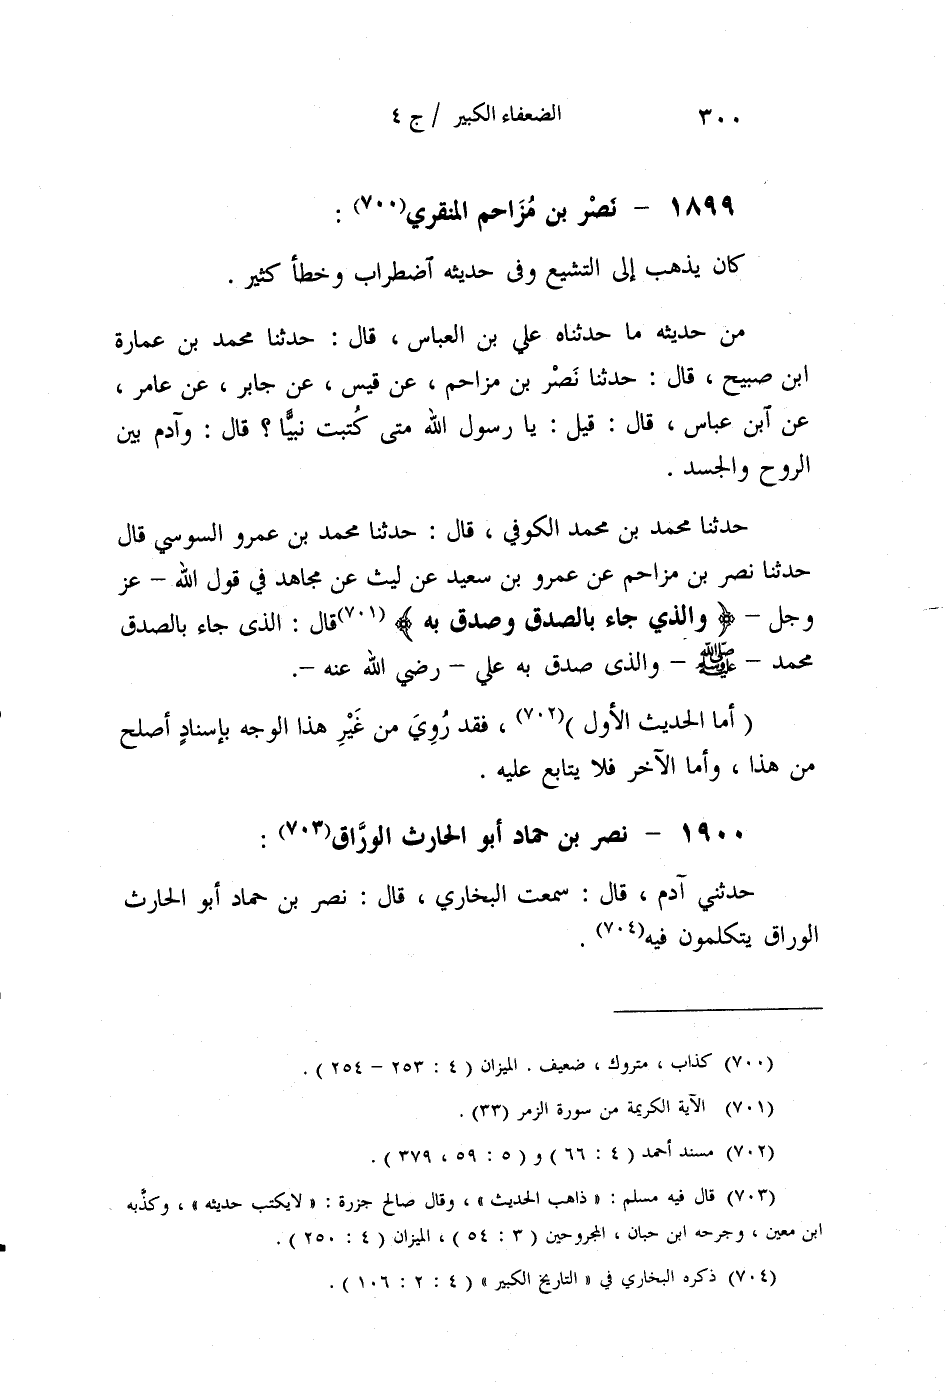 ٣٠٠ الضعفاء الكبير / ج ٤
١٨٩٩ – نَصْر بن مُزَاحم المنقري(٧٠٠) :
كان يذهب إلى التشيع وفى حديثه آضطراب وخطأ كثير .
من حديثه ما حدثناه علي بن العباس ، قال : حدثنا محمد بن عمارة
ابن صبيح ، قال : حدثنا نَصْر بن مزاحم ، عن قيس ، عن جابر ، عن عامر ،
عن آبن عباس ، قال : قيل : يا رسول الله متى كُتبت نبيًّا ؟ قال : وآدم بين
الروح والجسد .
حدثنا محمد بن محمد الكوفي ، قال : حدثنا محمد بن عمرو السوسي قال
حدثنا نصر بن مزاحم عن عمرو بن سعيد عن ليث عن مجاهد في قول الله – عز
وجل – ﴿ والذي جاء بالصدق وصدق به ﴾ (٧٠١)قال : الذى جاء بالصدق
محمد – ﷺ – والذى صدق به علي – رضي الله عنه –.
( أما الحديث الأول )(٧٠٢) ، فقد رُوِيَ من غَيْرِ هذا الوجه بإسنادٍ أصلح
من هذا ، وأما الآخر فلا يتابع عليه .
١٩٠٠ – نصر بن حماد أبو الحارث الورَّاق(٧٠٣) :
حدثني آدم ، قال : سمعت البخاري ، قال : نصر بن حماد أبو الحارث
الوراق يتكلمون فيه(٧٠٤) .
(٧٠٠) كذاب ، متروك ، ضعيف . الميزان ( ٤ : ٢٥٣ – ٢٥٤ ) .
(٧٠١) الآية الكريمة من سورة الزمر (٣٣) .
(٧٠٢) مسند أحمد ( ٤ : ٦٦ ) و ( ٥ : ٥٩ ، ٣٧٩ ) .
(٧٠٣) قال فيه مسلم : « ذاهب الحديث » ، وقال صالح جزرة : « لايكتب حديثه » ، وكذَّبه
ابن معين ، وجرحه ابن حبان ، المجروحين ( ٣ : ٥٤ ) ، الميزان ( ٤ : ٢٥٠ ) .
(٧٠٤) ذكره البخاري في « التاريخ الكبير » ( ٤ : ٢ : ١٠٦ ) .